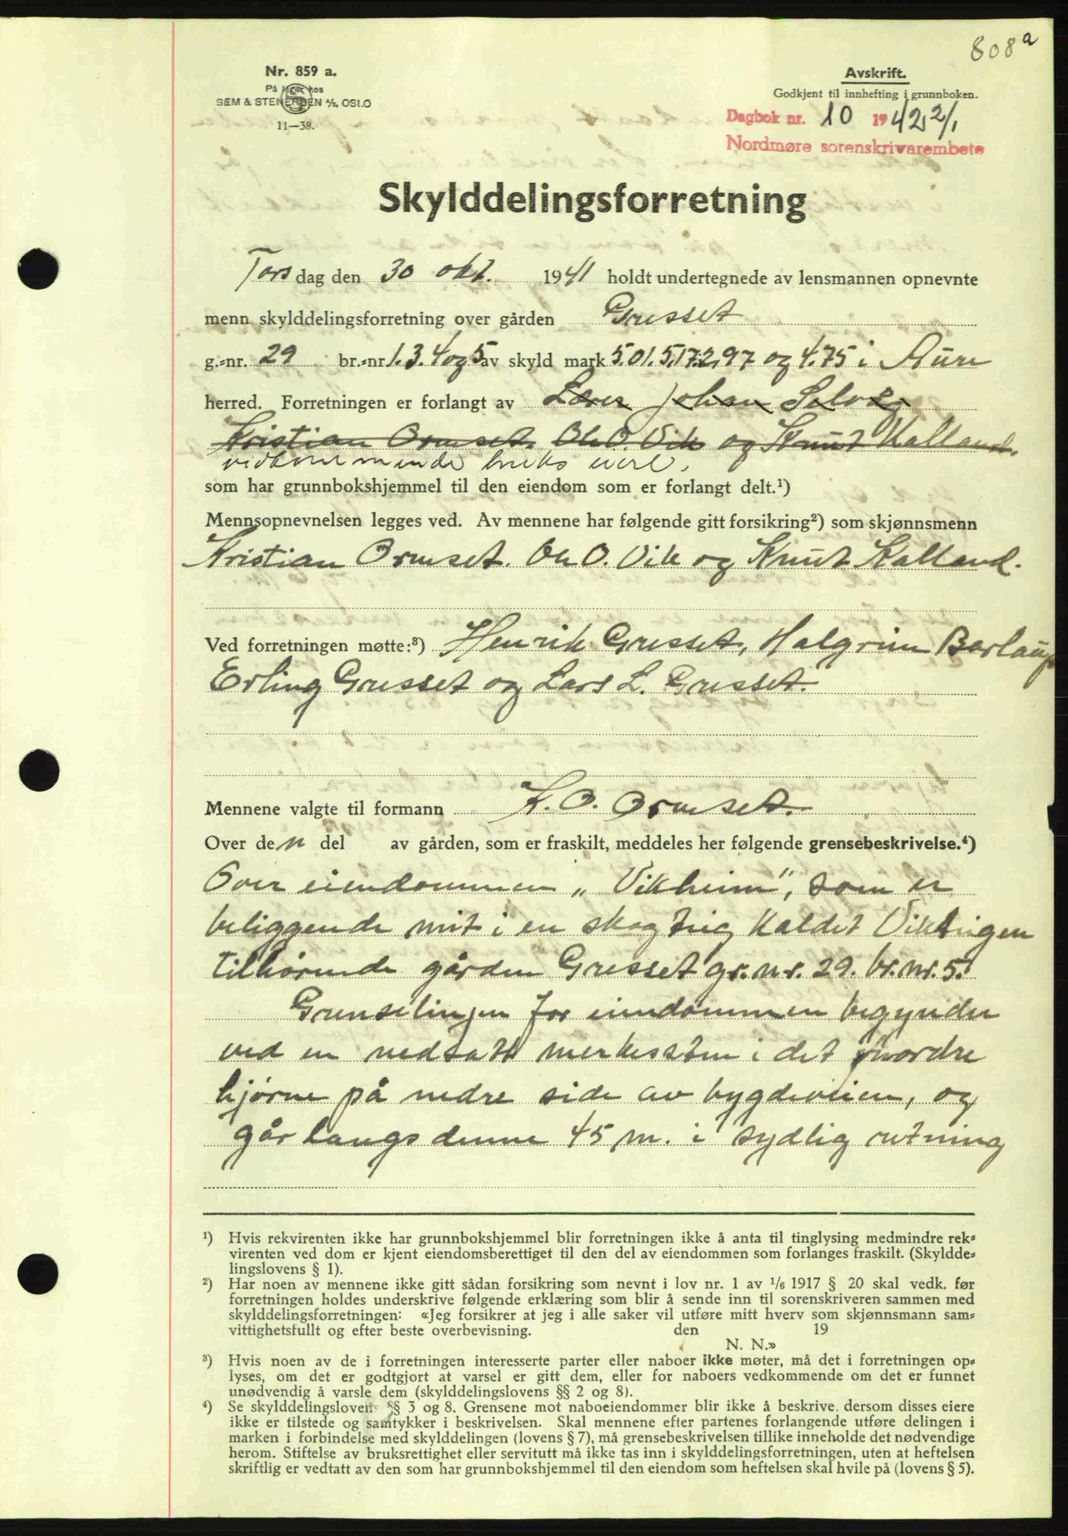 808a
Nr. 859 a.
På lager hos
SEM & STENERSEN A/S, OSLO
11—38.
Avskrift.
Godkjent til innhefting i grunnboken.
Dagbok nr. 10 1942 2/1
Nordmøre sorenskrivarembete
Skylddelingsforretning
Torsdag den 30 okt. 1941 holdt undertegnede av lensmannen opnevnte
menn skylddelingsforretning over gården Grusset
g.-nr. 29 br.-nr. 1.3.4 og 5 av skyld mark 5.01.5,17.2,97 og 4.75 i Aure
herred. Forretningen er forlangt av Lærer Johan Selvåg
Kristian Ormset. Ole O. Vik og Knut Kalland.
vedkommende bruks eiere.
som har grunnbokshjemmel til den eiendom som er forlangt delt.¹)
Mennsopnevnelsen legges ved. Av mennene har følgende gitt forsikring²) som skjønnsmenn
Kristian Ormset. Ole O. Vik og Knut Kalland.
Ved forretningen møtte:³) Henrik Grusset, Halgrim Barlaup
Erling Grusset og Lars L. Grusset.
Mennene valgte til formann K. O. Ormset.
Over den del av gården, som er fraskilt, meddeles her følgende grensebeskrivelse.⁴)
Over eiendommen „Vikheim", som er
beliggende mit i en skogteig kaldet Vikteigen
tilhørende gården Grusset gr.nr. 29. br.nr. 5.
Grenselinjen for eiendommen begynder
ved en nedsatt merkesten i det nordre
hjørne på nedre side av bygdeveien, og
går langs denne 45 m. i sydlig retning
¹) Hvis rekvirenten ikke har grunnbokshjemmel blir forretningen ikke å anta til tinglysing medmindre rek-
virenten ved dom er kjent eiendomsberettiget til den del av eiendommen som forlanges fraskilt. (Skyldde-
lingslovens § 1).
²) Har noen av mennene ikke gitt sådan forsikring som nevnt i lov nr. 1 av 1/6 1917 § 20 skal vedk. før
forretningen holdes underskrive følgende erklæring som blir å sende inn til sorenskriveren sammen med
skylddelingsforretningen: «Jeg forsikrer at jeg i alle saker vil utføre mitt hverv som skjønnsmann sam-
vittighetsfullt og efter beste overbevisning. den 19
N. N.»
³) Hvis noen av de i forretningen interesserte parter eller naboer ikke møter, må det i forretningen op-
lyses, om det er godtgjort at varsel er gitt dem, eller for naboers vedkommende om det er funnet
unødvendig å varsle dem (skylddelingslovens §§ 2 og 8).
⁴) Se skylddelingsloven §§ 3 og 8. Grensene mot naboeiendommer blir ikke å beskrive, dersom disses eiere
ikke er tilstede og samtykker i beskrivelsen. Skal mennene efter partenes forlangende utføre delingen i
marken i forbindelse med skylddelingen (lovens § 7), må grensebeskrivelsen tillike inneholde det nødvendige
herom. Stiftelse av bruksrettighet eller servitutt må ikke tas inn i skylddelingsforretningen, uten at heftelsen
skriftlig er vedtatt av den som har grunnbokshjemmel til den eiendom som heftelsen skal hvile på (lovens § 5).